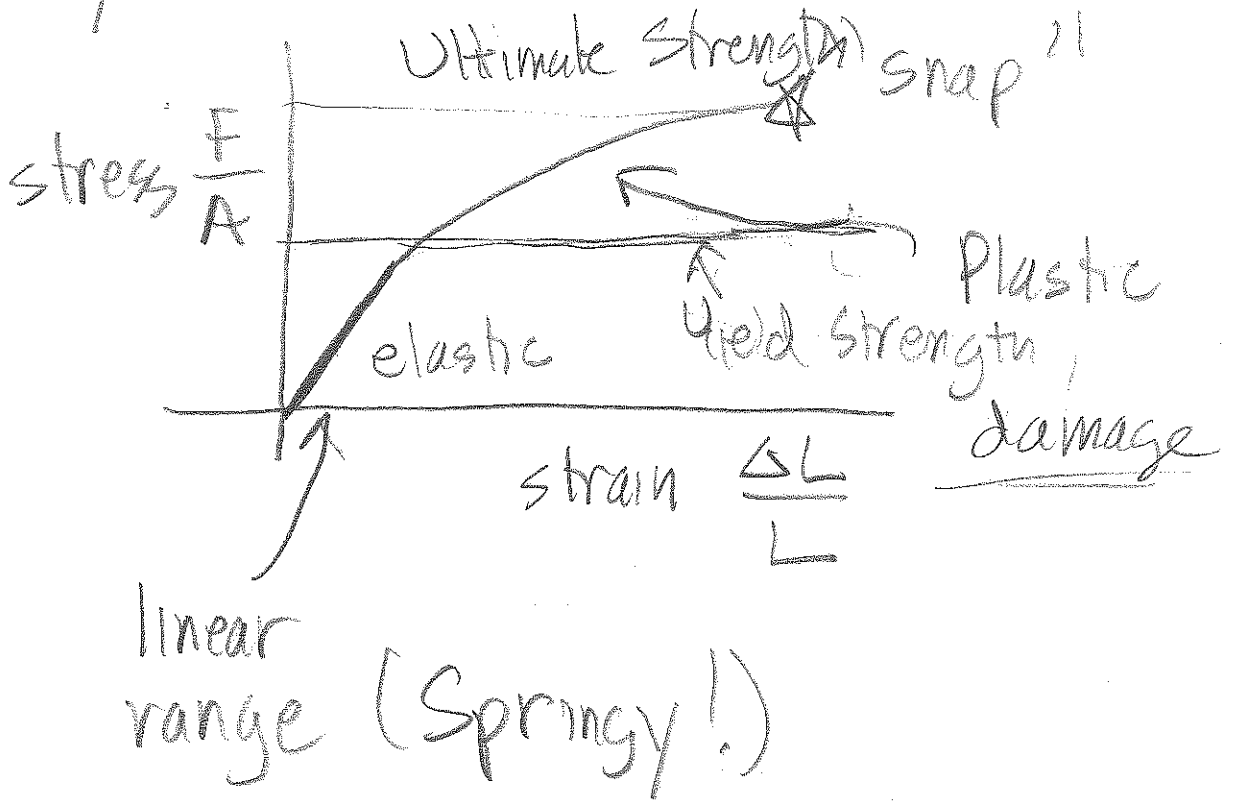 Ultimate Strength snap"
stress F/A
Plastic
elastic
Yield Strength,
damage
strain ΔL/L
linear
range (Springy!)